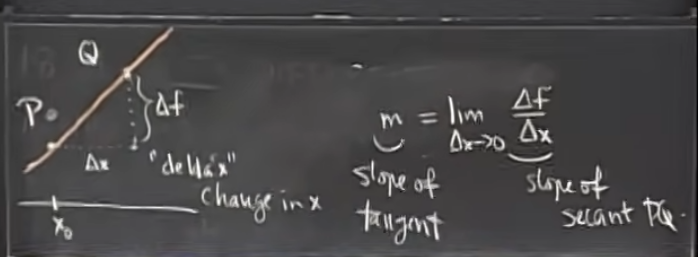 Q
P
Δf
Δx
"delta x"
change in x
x₀
m = lim Δf/Δx
Δx→0
slope of
tangent
slope of
secant PQ.